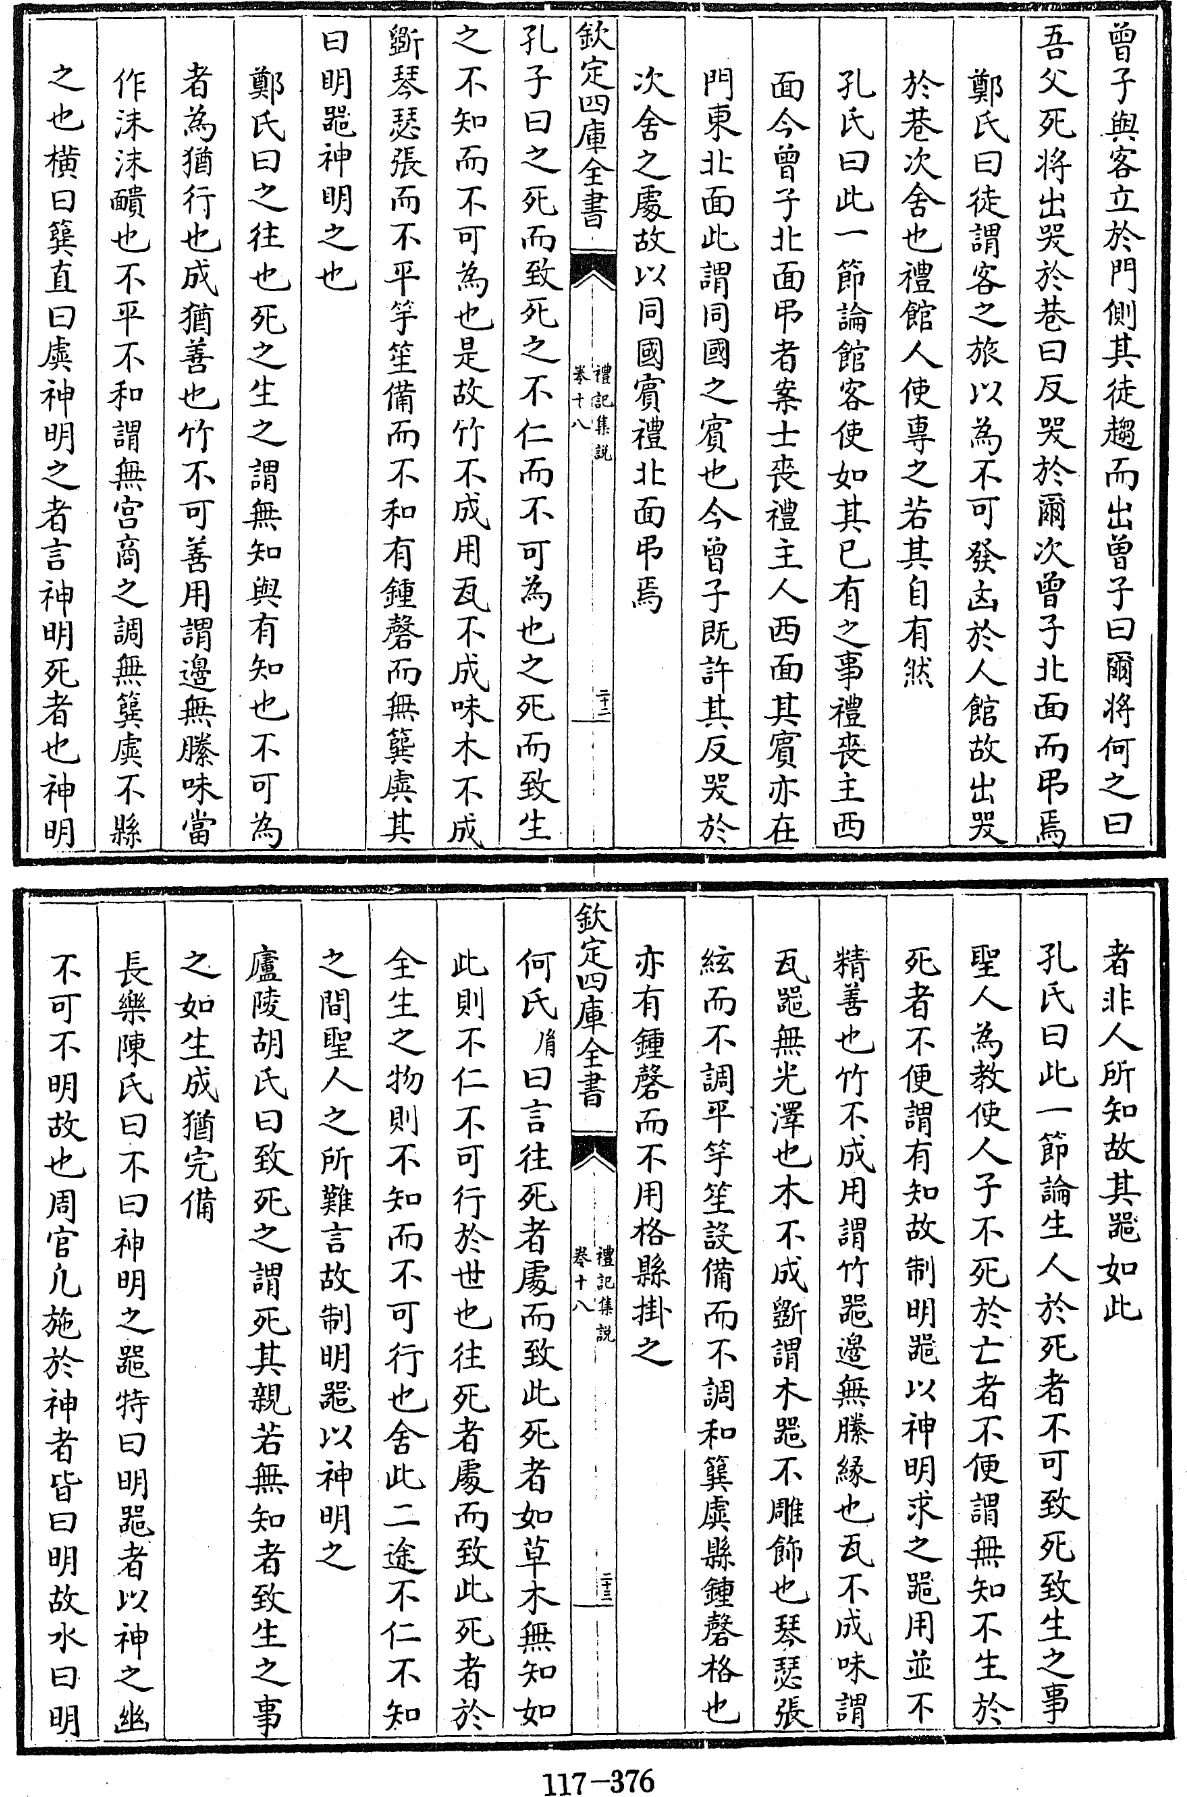 曾子與客立於門側其徒趨而出曾子曰爾將何之曰
吾父死將出哭於巷曰反哭於爾次曾子北面而弔焉
鄭氏曰徒謂客之旅以為不可發凶於人館故出哭
於巷次舍也禮館人使專之若其自有然
孔氏曰此一節論館客使如其已有之事禮喪主西
面今曾子北面弔者案士喪禮主人西面其賓亦在
門東北面此謂同國之賓也今曾子既許其反哭於
次舍之處故以同國賓禮北面弔焉
欽定四庫全書
禮記集說
卷十八
二十二
孔子曰之死而致死之不仁而不可為也之死而致生
之不知而不可為也是故竹不成用瓦不成味木不成
斲琴瑟張而不平竽笙備而不和有鍾磬而無簨虡其
曰明器神明之也
鄭氏曰之往也死之生之謂無知與有知也不可為
者為猶行也成猶善也竹不可善用謂邊無縢味當
作沬沬靧也不平不和謂無宫商之調無簨虡不縣
之也橫曰簨直曰虡神明之者言神明死者也神明
者非人所知故其器如此
孔氏曰此一節論生人於死者不可致死致生之事
聖人為教使人子不死於亡者不便謂無知不生於
死者不便謂有知故制明器以神明求之器用並不
精善也竹不成用謂竹器邊無縢緣也瓦不成味謂
瓦器無光澤也木不成斲謂木器不雕飾也琴瑟張
絃而不調平竽笙設備而不調和簨虡縣鍾磬格也
亦有鍾磬而不用格縣掛之
欽定四庫全書
禮記集說
卷十八
二十三
何氏胤曰言往死者處而致此死者如草木無知如
此則不仁不可行於世也往死者處而致此死者於
全生之物則不知而不可行也舍此二途不仁不知
之間聖人之所難言故制明器以神明之
廬陵胡氏曰致死之謂死其親若無知者致生之事
之如生成猶完備
長樂陳氏曰不曰神明之器特曰明器者以神之幽
不可不明故也周官凡施於神者皆曰明故水曰明
117-376